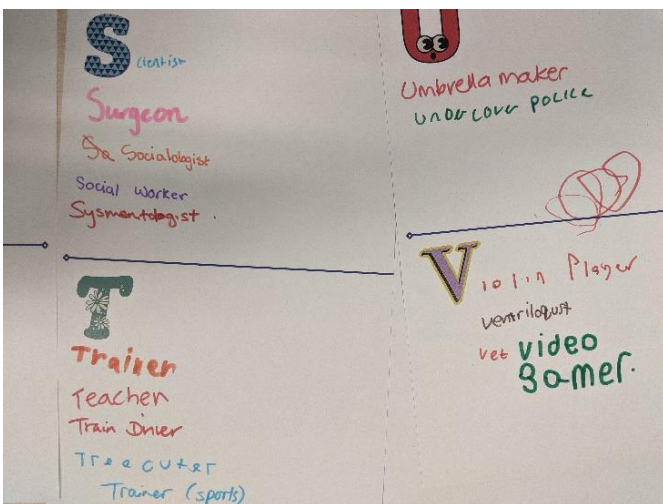 Scientist
Surgeon
Sa Socialologist
Social Worker
Sysmentologist.
Trainer
Teacher
Train Driver
Tree cuter
Trainer (sports)
U
Umbrella maker
Undercover police
Violin Player
ventriloqust
vet video
gamer.